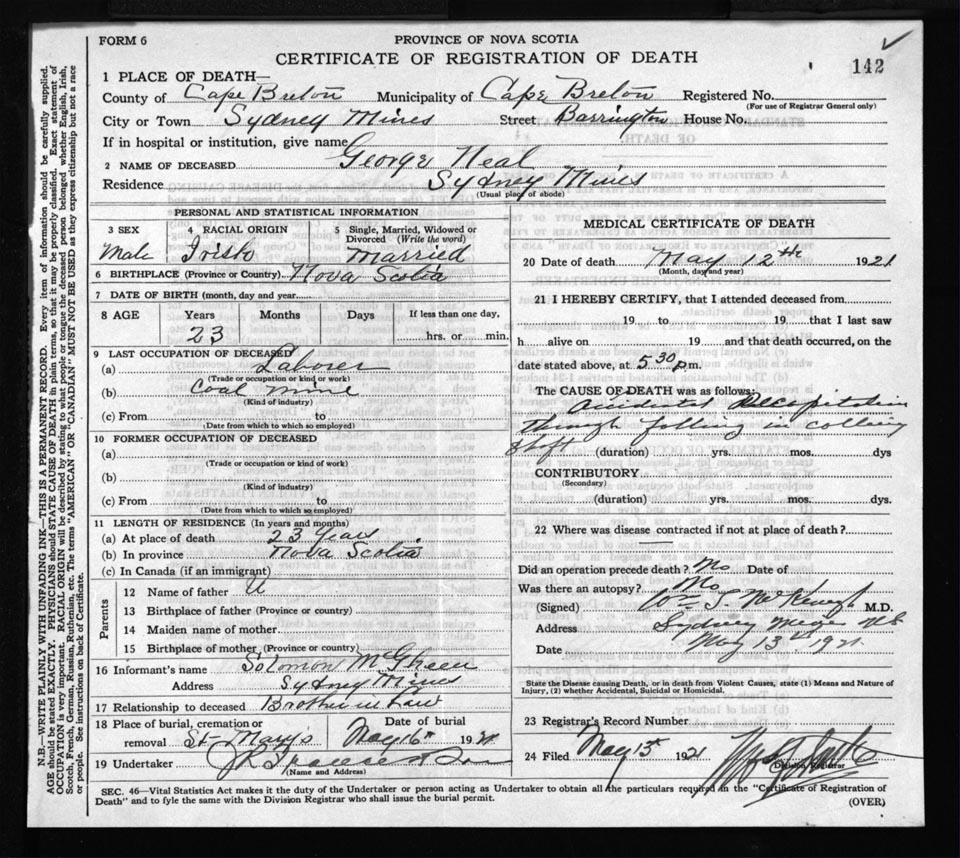 FORM 6
PROVINCE OF NOVA SCOTIA
CERTIFICATE OF REGISTRATION OF DEATH
142
1 PLACE OF DEATH—
County of Cape Breton Municipality of Cape Breton Registered No.
(For use of Registrar General only)
City or Town Sydney Mines Street Barrington House No.
If in hospital or institution, give name
2 NAME OF DECEASED George Neal
Residence Sydney Mines
(Usual place of abode)
PERSONAL AND STATISTICAL INFORMATION
3 SEX
Male
4 RACIAL ORIGIN
Irish
5 Single, Married, Widowed or Divorced (Write the word)
Married
6 BIRTHPLACE (Province or Country) Nova Scotia
7 DATE OF BIRTH (month, day and year
8 AGE Years Months Days If less than one day,
23 hrs. or min.
9 LAST OCCUPATION OF DECEASED
(a) Laborer
(Trade or occupation or kind or work)
(b) Coal Mine
(Kind of industry)
(c) From to
(Date from which to which so employed)
10 FORMER OCCUPATION OF DECEASED
(a)
(Trade or occupation or kind of work)
(b)
(Kind of industry)
(c) From to
(Date from which to which so employed)
11 LENGTH OF RESIDENCE (In years and months)
(a) At place of death 23 Years
(b) In province Nova Scotia
(c) In Canada (if an immigrant)
Parents
12 Name of father U
13 Birthplace of father (Province or country)
14 Maiden name of mother
15 Birthplace of mother (Province or country)
16 Informant's name Solomon
Address Sydney Mines
17 Relationship to deceased Brother in Law
18 Place of burial, cremation or Date of burial
removal St Marys May 16th 1921
19 Undertaker
(Name and Address)
MEDICAL CERTIFICATE OF DEATH
20 Date of death May 12th 1921
(Month, day and year)
21 I HEREBY CERTIFY, that I attended deceased from
19 to 19 that I last saw
h alive on 19 and that death occurred, on the
date stated above, at 5 30 p.m.
The CAUSE OF DEATH was as follows:
Accidental Decapitation
through falling in colliery
shaft (duration) yrs. mos. dys
CONTRIBUTORY
(Secondary)
(duration) yrs. mos. dys.
22 Where was disease contracted if not at place of death?
Did an operation precede death? No Date of
Was there an autopsy? No
(Signed) Wm M.D.
Address Sydney Mines NS
Date May 13th 1921
State the Disease causing Death, or in death from Violent Causes, state (1) Means and Nature of
Injury, (2) whether Accidental, Suicidal or Homicidal.
23 Registrar's Record Number
24 Filed May 15 1921
Division Registrar
SEC. 46—Vital Statistics Act makes it the duty of the Undertaker or person acting as Undertaker to obtain all the particulars required in the "Certificate of Registration of
Death" and to fyle the same with the Division Registrar who shall issue the burial permit.
(OVER)
N.B.—WRITE PLAINLY WITH UNFADING INK—THIS IS A PERMANENT RECORD. Every item of information should be carefully supplied.
AGE should be stated EXACTLY. PHYSICIANS should STATE CAUSE OF DEATH in plain terms, so that it may be properly classified. Exact statement of
OCCUPATION is very important. RACIAL ORIGIN will be described by stating to what people or tongue the deceased person belonged whether English, Irish,
Scotch, French, German, Russian, Ruthenian, etc. The terms "AMERICAN" OR "CANADIAN" MUST NOT BE USED as they express citizenship but not a race
or people. See instructions on back of Certificate.